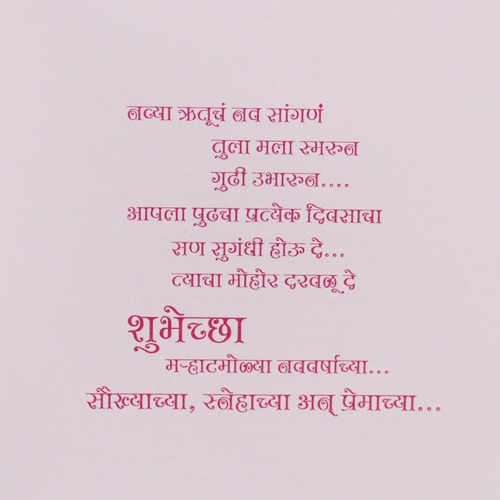 नव्या ऋतूचं नव सांगणं
तुला मला स्मरुन
गुढी उभारुन....
आपला पुढचा प्रत्येक दिवसाचा
सण सुगंधी होऊ दे...
त्याचा मोहोर दरवळू दे
शुभेच्छा
मऱ्हाटमोळ्या नववर्षाच्या...
सौख्याच्या, स्नेहाच्या अन् प्रेमाच्या...